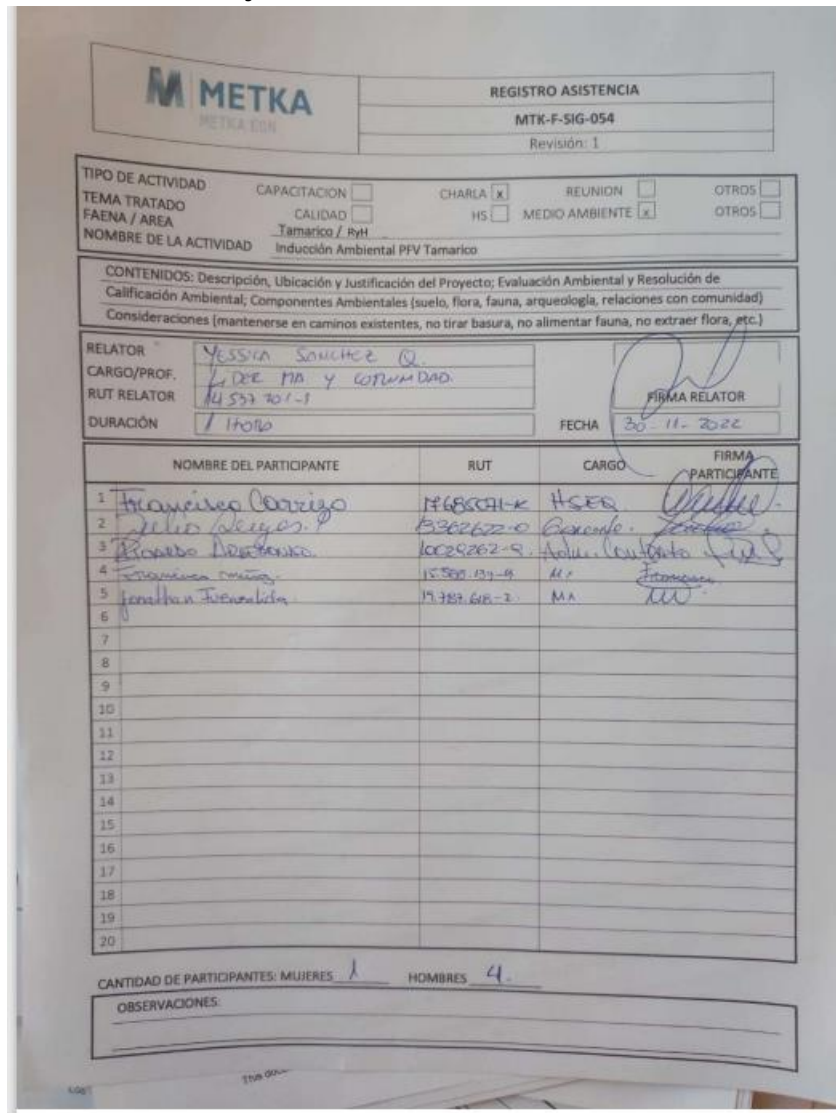 M METKA
METKA EGN
REGISTRO ASISTENCIA
MTK-F-SIG-054
Revisión: 1
TIPO DE ACTIVIDAD CAPACITACION CHARLA x REUNION OTROS
TEMA TRATADO CALIDAD HS MEDIO AMBIENTE x OTROS
FAENA / AREA Tamarico / RyH
NOMBRE DE LA ACTIVIDAD Inducción Ambiental PFV Tamarico
CONTENIDOS: Descripción, Ubicación y Justificación del Proyecto; Evaluación Ambiental y Resolución de
Calificación Ambiental; Componentes Ambientales (suelo, flora, fauna, arqueología, relaciones con comunidad)
Consideraciones (mantenerse en caminos existentes, no tirar basura, no alimentar fauna, no extraer flora, etc.)
RELATOR YESSICA SANCHEZ Q.
CARGO/PROF. LIDER MA Y COMUNIDAD.
RUT RELATOR 14537701-1 FIRMA RELATOR
DURACIÓN 1 HORA FECHA 30-11-2022
NOMBRE DEL PARTICIPANTE RUT CARGO FIRMA PARTICIPANTE
1 Francisco Carrizo HSEQ
2 Julio 13362622-0 Gerente.
3 Adm. Contrato
4 Francisca Muñoz. MA
5 Jonathan Fuenzalida. 19.787.618-2. MA
6
7
8
9
10
11
12
13
14
15
16
17
18
19
20
CANTIDAD DE PARTICIPANTES: MUJERES 1 HOMBRES 4.
OBSERVACIONES: